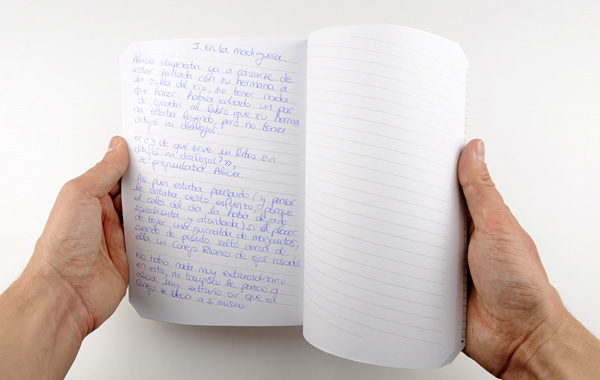 I en la madriguera
Alicia empezaba ya a cansarse de
estar sentada con su hermana a
la orilla del río, sin tener nada
que hacer: había echado un par
de ojeadas al libro que su hermana
estaba leyendo, pero no tenía
dibujos ni diálogos.
«¿y de qué sirve un libro sin
dibujos ni diálogos?»,
se preguntaba Alicia.
Así pues, estaba pensando (y pensar
le costaba cierto esfuerzo, porque
el calor del día la había dejado
somnolienta y atontada) si el placer
de tejer una guirnalda de margaritas,
cuando de pronto saltó cerca de
ella un Conejo Blanco de ojos rosados
No había nada muy extraordinario
en esto, ni tampoco le pareció a
alicia muy extraño oír que el
conejo se decía a sí mismo